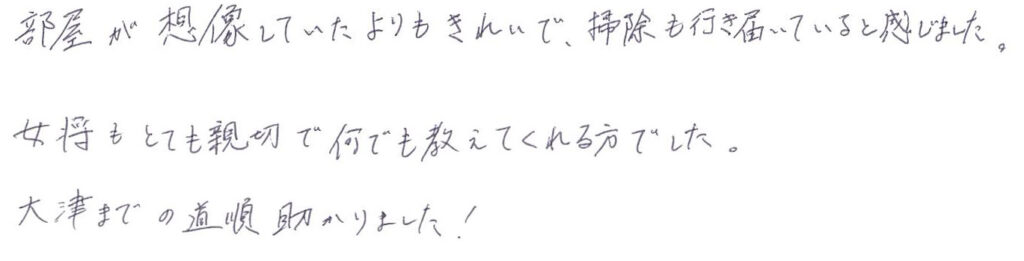 部屋が想像していたよりもきれいで、掃除も行き届いていると感じました。
女将もとても親切で何でも教えてくれる方でした。
大津までの道順助かりました!